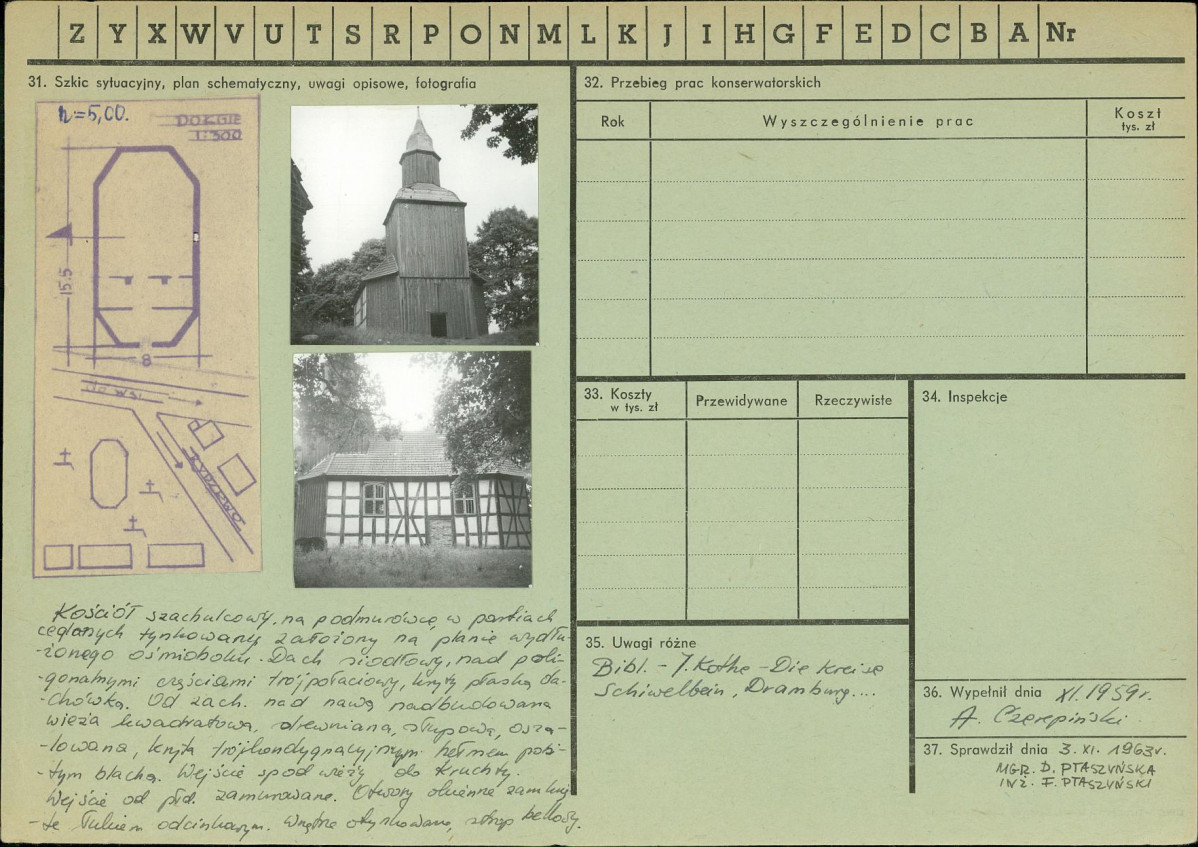 Z Y X W V U T S R P O N M L K J I H G F E D C B A Nr
31. Szkic sytuacyjny, plan schematyczny, uwagi opisowe, fotografia
h=5,00.
DOŁGIE
1:300
15.5
8
DO WSI
RYDZEWO
Kościół szachulcowy, na podmurówce, w partiach
ceglanych tynkowany założony na planie wydłu-
-żonego ośmioboku. Dach siodłowy, nad poli-
-gonalnymi częściami trójpołaciowy, kryty płaską da-
-chówką. Od zach. nad nawą nadbudowana
wieża kwadratowa, drewniana, słupowa, osza-
-lowana, kryta trójkondygnacyjnym hełmem pobi-
-tym blachą. Wejście spod wieży do kruchty.
Wejście od płd. zamurowane. Otwory okienne zamknię-
-te łukiem odcinkowym. Wnętrze otynkowane, strop belkowy.
32. Przebieg prac konserwatorskich
Rok
Wyszczególnienie prac
Koszt
tys. zł
33. Koszty
w tys. zł
Przewidywane
Rzeczywiste
34. Inspekcje
35. Uwagi różne
Bibl. - J. Kothe - Die Kreise
Schiwelbein, Dramburg....
36. Wypełnił dnia XI.1959r.
A. Czerepiński
37. Sprawdził dnia 3. XI. 1963r.
MGR. D. PTASZYŃSKA
INŻ. F. PTASZYŃSKI